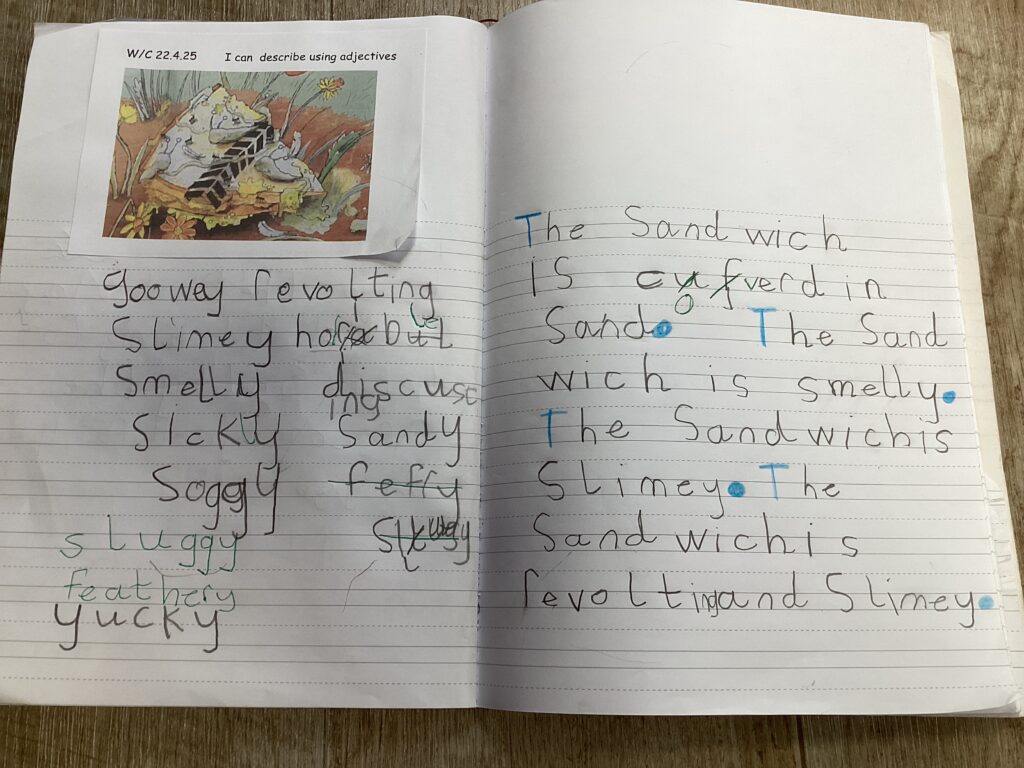 W/C 22.4.25 I can describe using adjectives
gooey revolting
Slimey
Smelly discuse
ings
Sickly Sandy
Soggy feffy
sluggy
feathery
yucky
The Sand wich
is coverd in
Sand. The Sand
wich is smelly.
The Sandwichis
Slimey. The
Sand wichis
revoltingand Slimey.